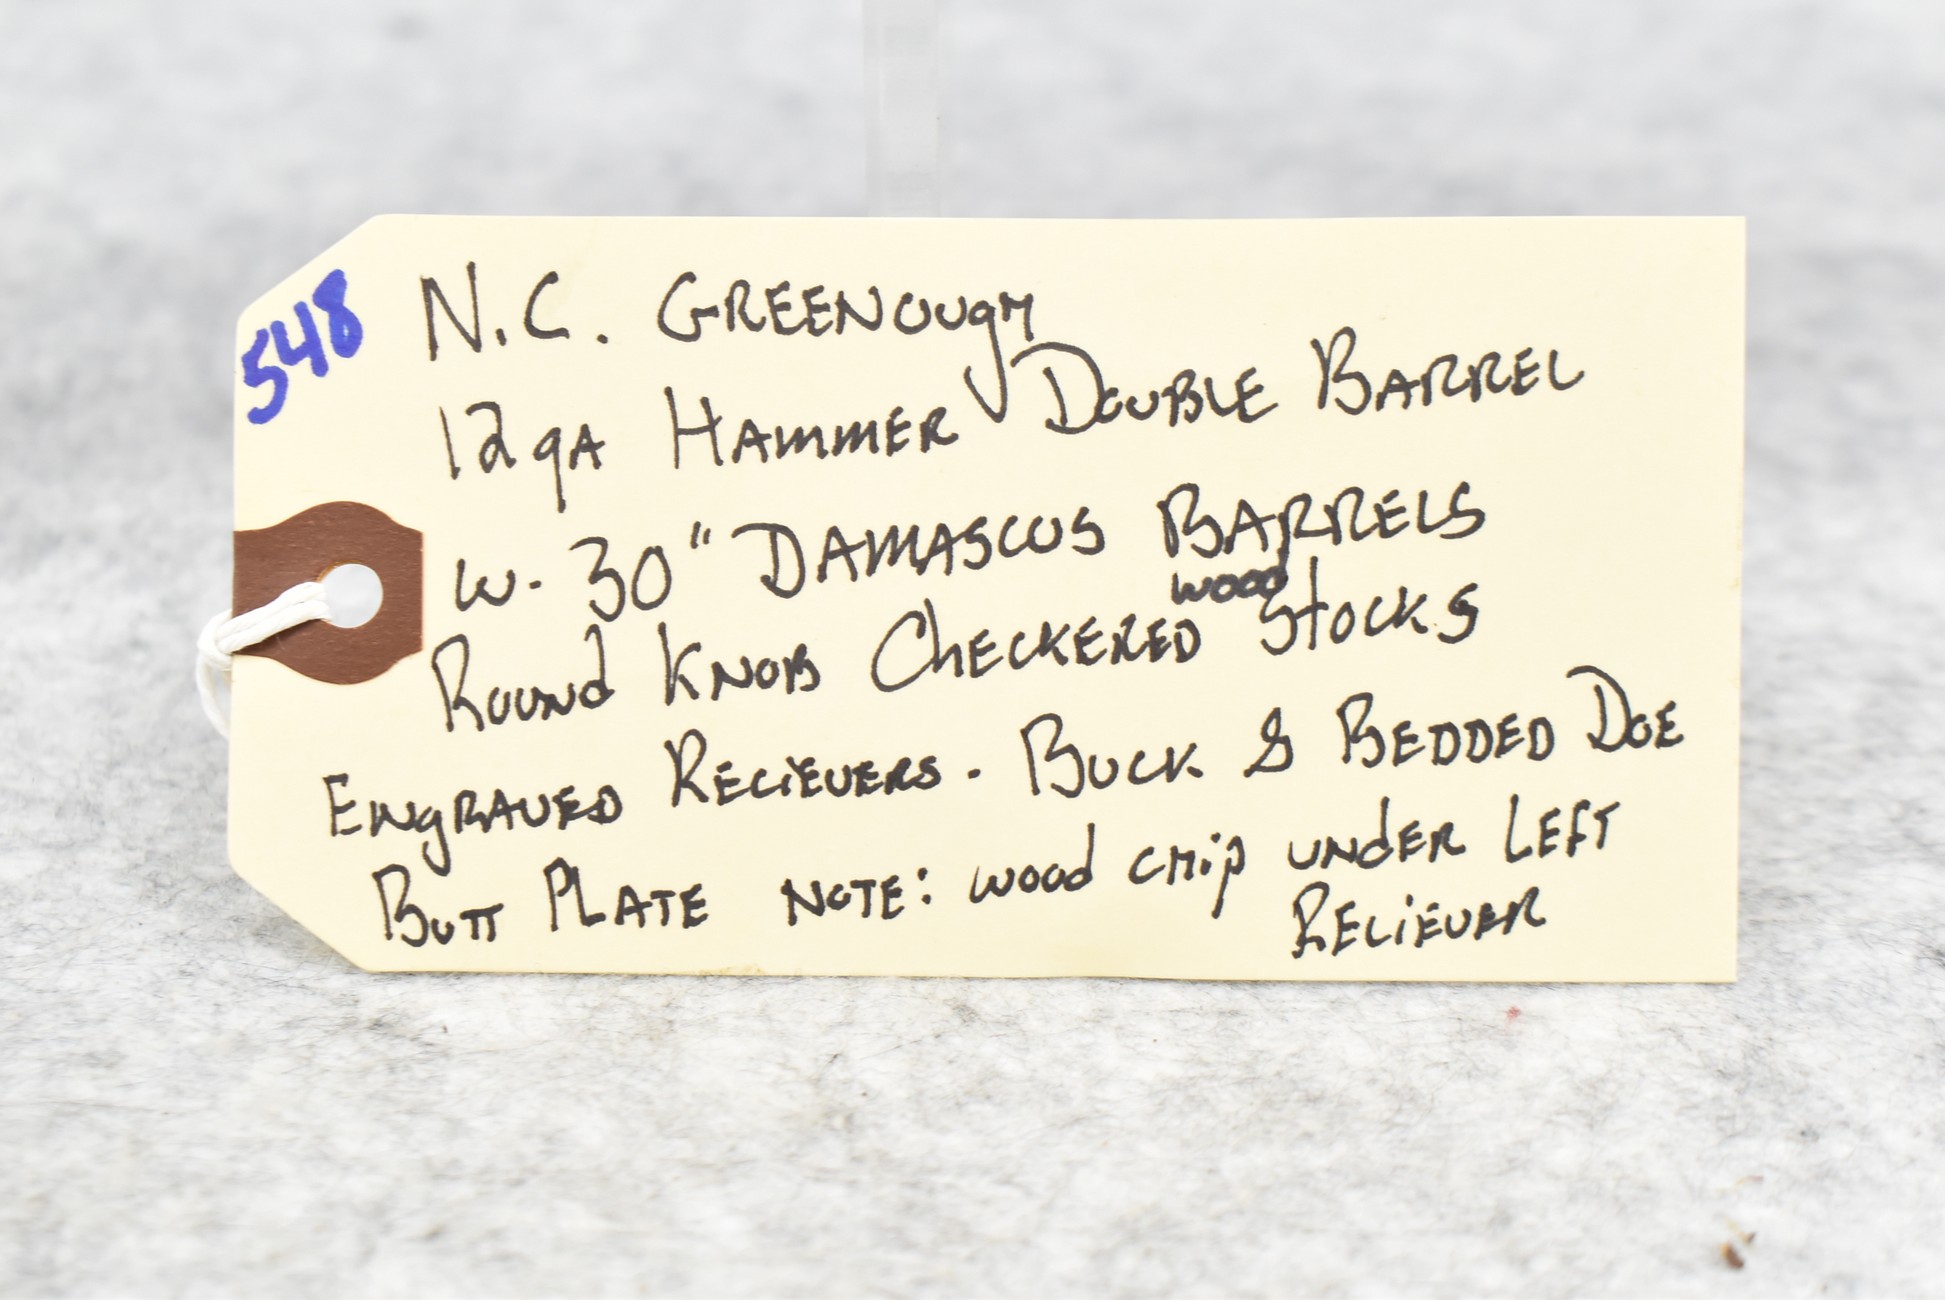 548
N.C. GREENOUGH
12gA HAMMER DOUBLE BARREL
w. 30" DAMASCUS BARRELS
ROUND KNOB CHECKERED wood STOCKS
ENGRAVED RECIEVERS. BUCK & BEDDED DOE
BUTT PLATE NOTE: wood chip UNDER LEFT
RECIEVER